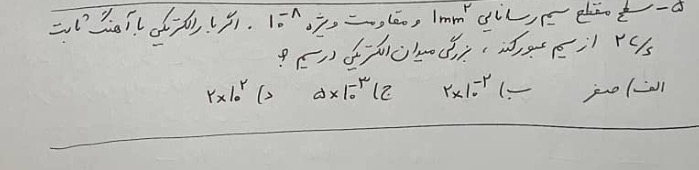 ۵- سطح مقطع سیم رسانایی ۱mm² و مقاومت ویژه ۱۰⁻⁸ . اگر بار الکتریکی با آهنگ ثابت
۲ c/s از سیم عبور کند ، بزرگی میدان الکتریکی در سیم ؟
الف) صفر ب) ۲x۱۰⁻² ج) ۵x۱۰⁻³ د) ۲x۱۰²